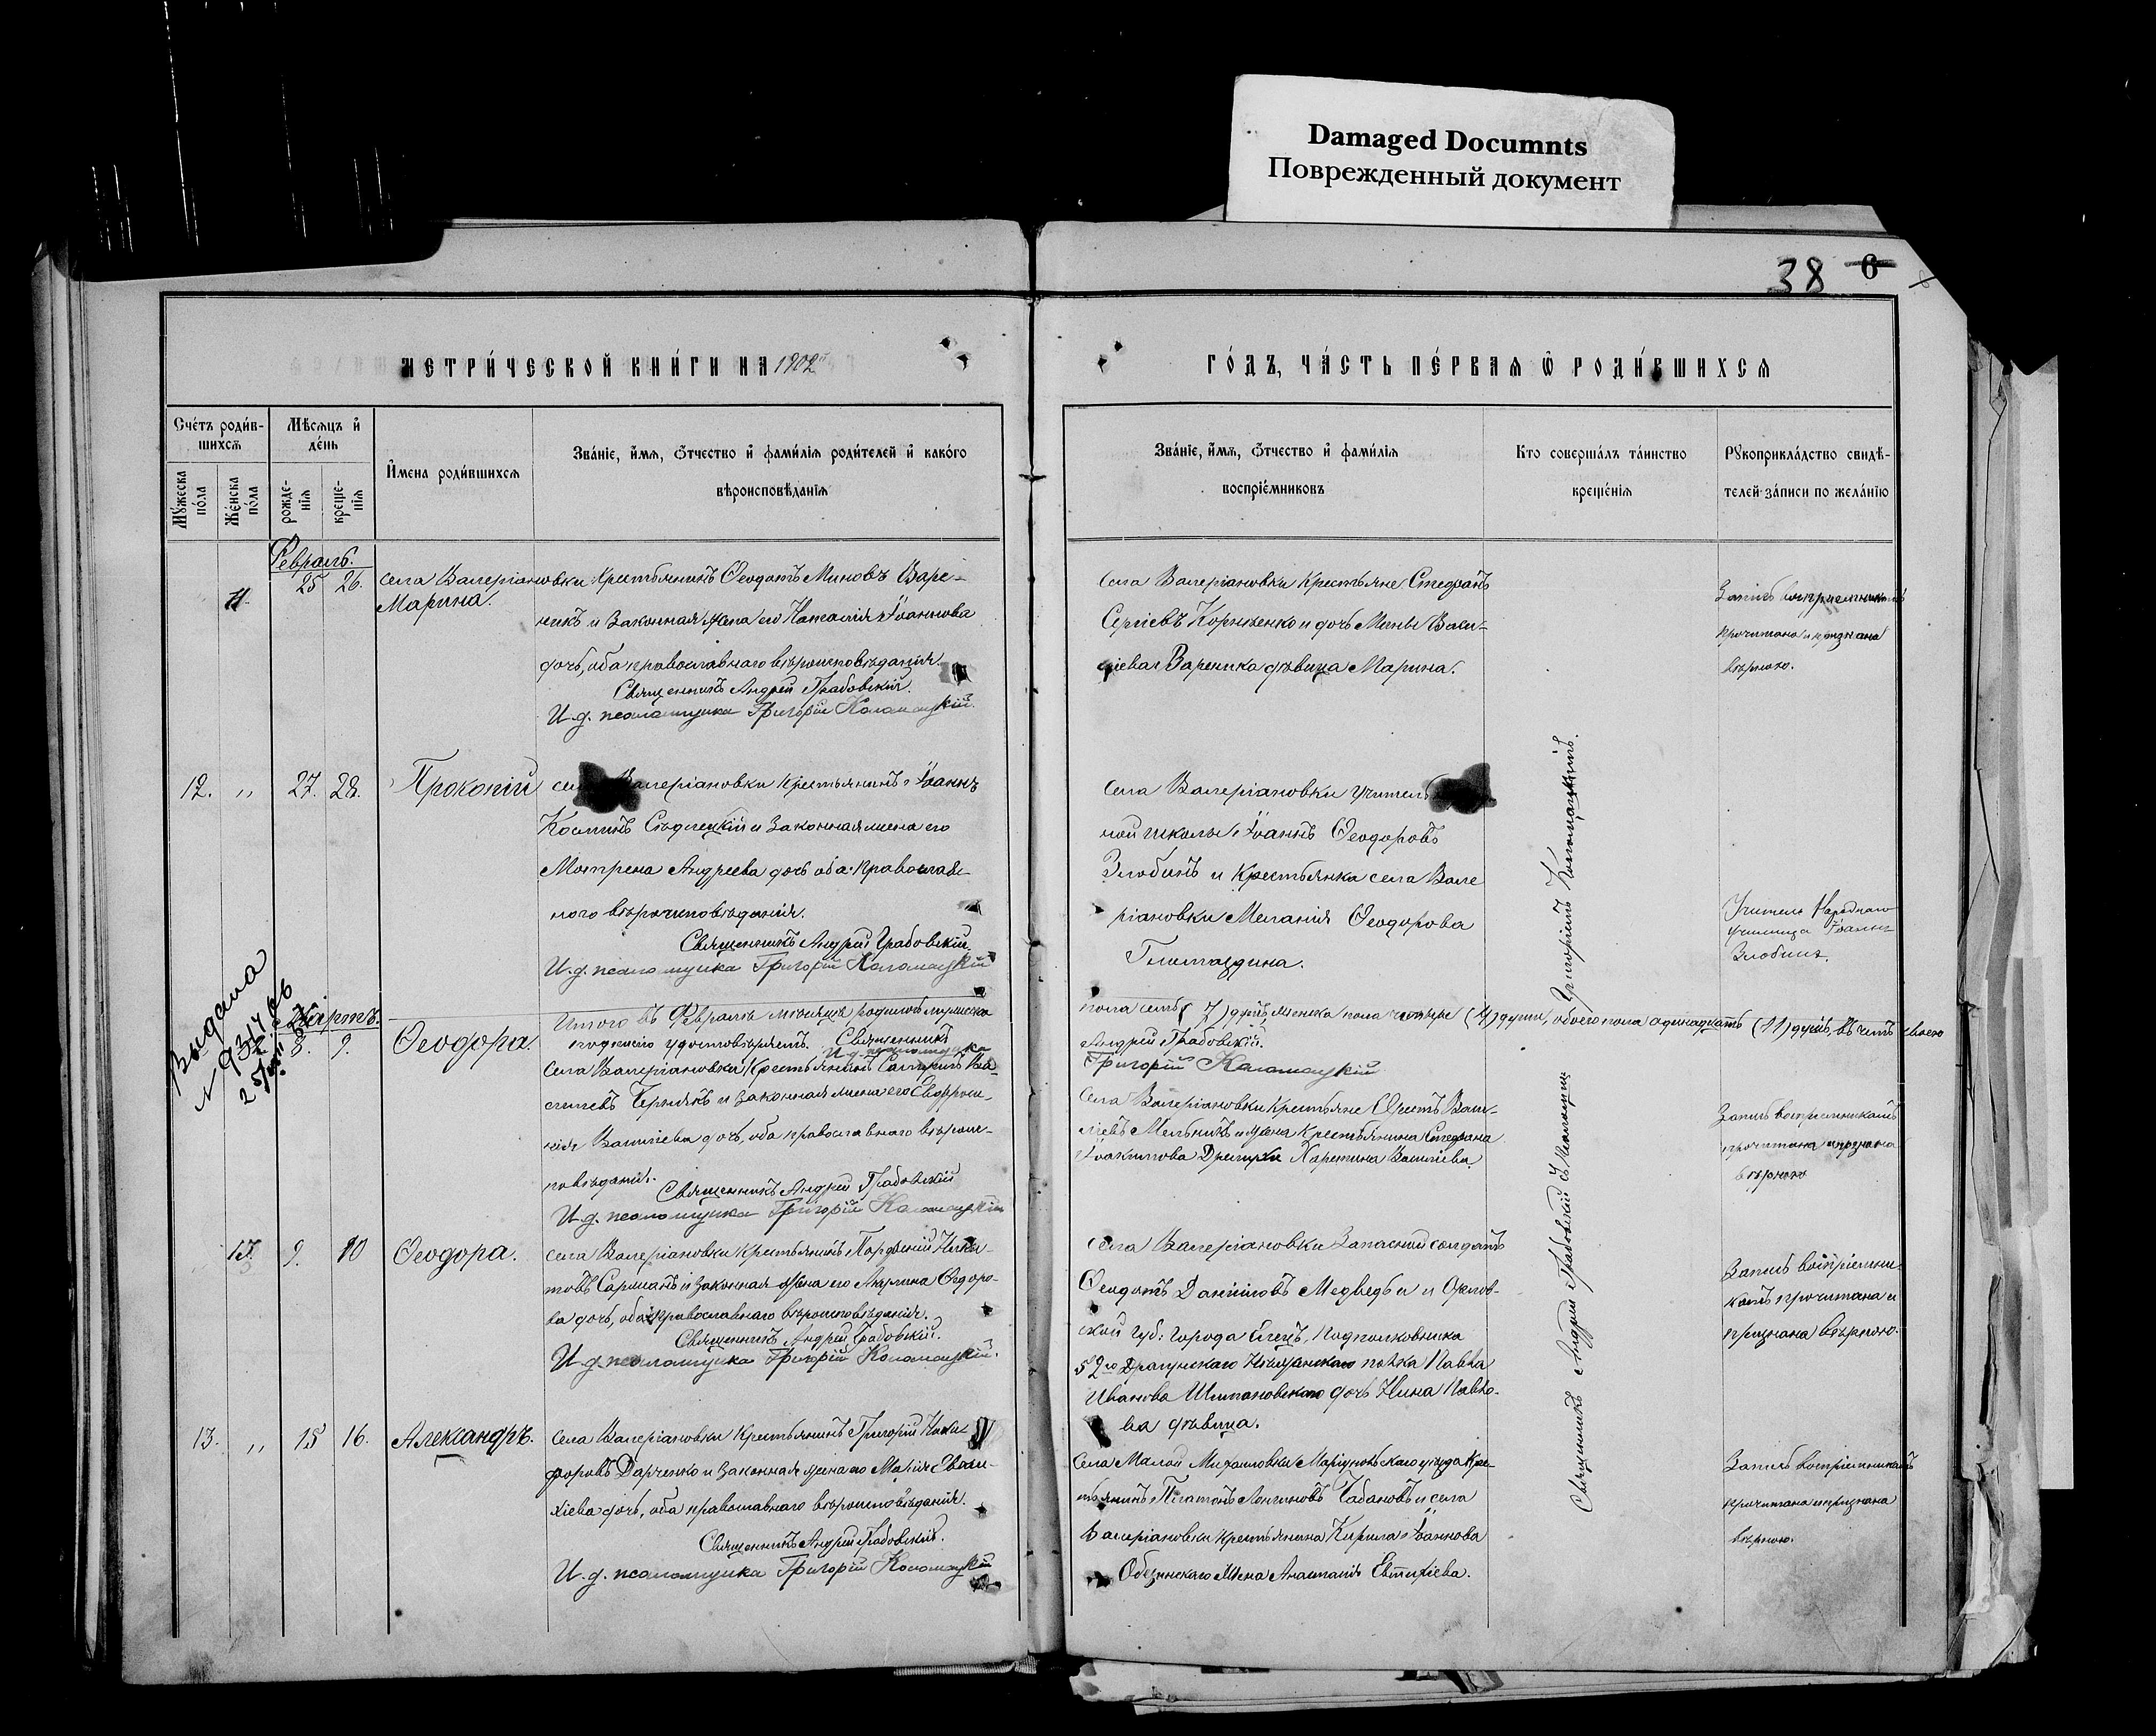 Damaged Documnts
Поврежденный документ
38 6
МЕТРИ́ЧЕСКОЙ КНИ́ГИ НА 1902
ГО́ДЪ, ЧА́СТЬ ПЕ́РВАѦ Ѿ РОДИ́ВШИХСѦ
Сче́тъ роди́в-
шихсѧ
Мѣ́сѧцъ и҆
де́нь
И҆мена роди́вшихсѧ
Зва́нїе, и҆́мѧ, ѻ҆́тчество и҆ фами́лїѧ роди́телей и҆ како́гѡ
вѣроисповѣ́данїѧ
Мꙋ́жеска
по́ла
Же́нска
по́ла
рожде-
нїѧ
креще-
нїѧ
Зва́нїе, и҆́мѧ, ѻ҆́тчество и҆ фами́лїѧ
воспрїе́мниковъ
Кто соверша́лъ та́инство
креще́нїѧ
Рꙋкоприкла́дство свидѣ́-
телей за́писи по жела́нїю
Февраль.
25 26.
Марина.
села Валеріановки крестьянинъ Ѳеодотъ Миновъ Варе-
никъ и законная жена его Наталія Іоаннова
дочь, оба православнаго вѣроисповѣданія.
Священникъ Андрей Грабовскій.
И. д. псаломщика Григорій Коломацкій.
села Валеріановки крестьяне Стефанъ
Сергіевъ Корниенко и дочь Мины Васи-
ліева Вареника дѣвица Марина.
Запись воспріемникамъ
прочитана и признана
вѣрною.
12. „ 27. 28. Прокопій
Валеріановки крестьянинъ Іоаннъ
Косминъ Сѣдлецкій и законная жена его
Мотрена Андреева дочь оба православ-
ного вѣроисповѣданія.
Священникъ Андрей Грабовскій.
И. д. псаломщика Григорій Коломацкій
села Валеріановки учитель
ной школы Іоаннъ Ѳеодоровъ
Злобинъ и крестьянка села Вале
ріановки Меланія Ѳеодорова
Учитель Народнаго
училища Іоаннъ
Злобинъ.
Итого въ Февралѣ мѣсяцѣ родилось мужеска
пола семь (7) душъ, женска пола четыре (4) души, обоего пола одинадцать (11) душъ, въ чемъ своею
подписью удостовѣряемъ. Священникъ
Андрей Грабовскій.
И. д. псаломщика
Григорій Коломацкій
Выдана
Мартъ.
8. 9. Ѳеодора.
села Валеріановки крестьянинъ Ва-
сильевъ Чернякъ и законная жена его Евфроси-
нія Василіева дочь, оба православнаго вѣроис-
повѣданія.
Священникъ Андрей Грабовскій
И. д. псаломщика Григорій Коломацкій
села Валеріановки крестьяне Васи-
ліевъ Мельникъ и жена крестьянина Стефана
Іоакимова Харитина Василіева.
Запись воспріемникамъ
прочитана и признана
вѣрною
9. 10 Ѳеодора.
села Валеріановки крестьянинъ Парфеній Ники-
товъ и законная жена его Акилина Ѳедоро-
ва дочь, оба православнаго вѣроисповѣданія.
Священникъ Андрей Грабовскій.
И. д. псаломщика Григорій Коломацкій.
села Валеріановки запасный солдатъ
Ѳеодотъ Данииловъ Медведь и Орлов-
ской губ. города Елецъ, Подполковника
52го Драгунскаго Нѣжинскаго полка Павла
Иванова дочь Нина Павло-
ва дѣвица.
Запись воспріемни-
камъ прочитана и
признана вѣрною.
13. „ 15 16. Александръ.
села Валеріановки крестьянинъ Григорій Ники-
форовъ Дарченко и законная жена его Марія
дочь, оба православнаго вѣроисповѣданія.
Священникъ Андрей Грабовскій.
И. д. псаломщика Григорій Коломацкій
села Малой Михайловки Маріупольскаго уѣзда кре-
стьянинъ Платонъ Лонгиновъ Чабановъ и села
Валеріановки крестьянина Кирила Іоаннова
жена Анастасія Евтихіева.
Запись воспріемникамъ
прочитана и признана
вѣрною.
Священникъ Андрей Грабовскій съ псаломщик. Григоріемъ Коломацкимъ.